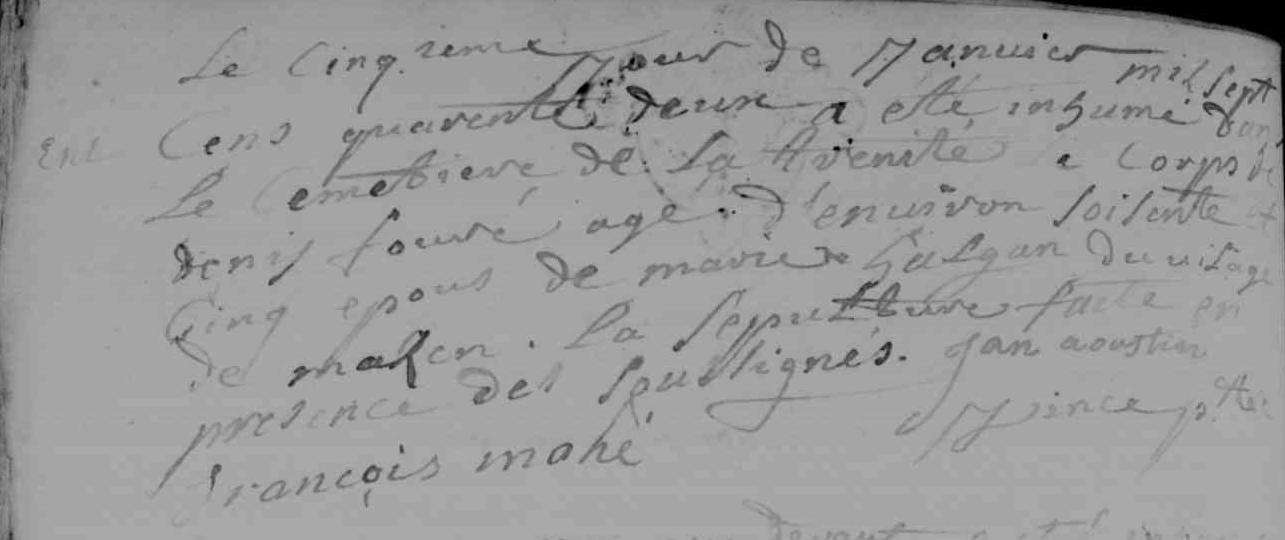 Le Cinq.ieme Jour de Janvier mil sept
Cens quarente deux a esté inhumé dans
Ent Le Cemetiere de La trenité e Corps de
denis fouré agé d'environ soisente et
Cinq epous de marie halgan du vilage
de maken. La sepulture faite en
presence des soussignés. Jan aoustin
françois mahé